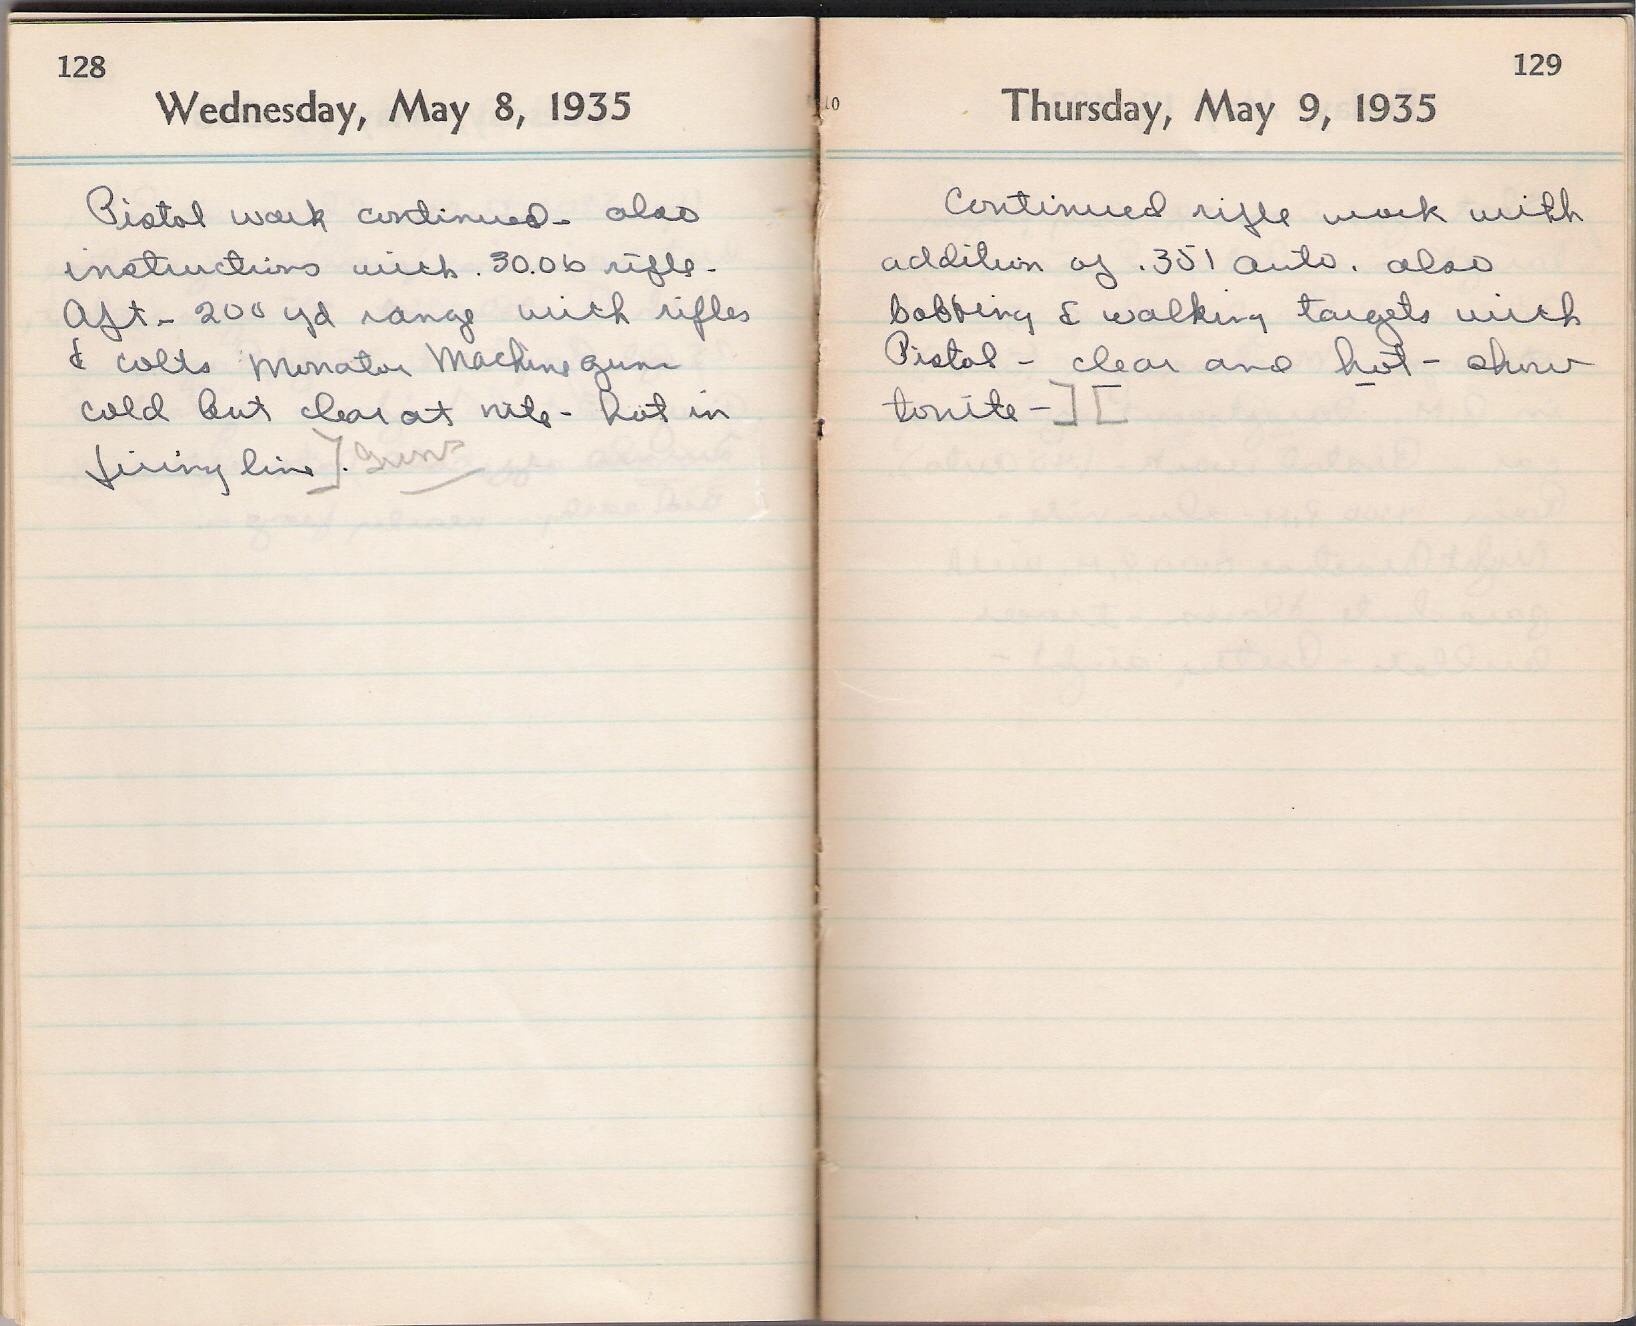 128
Wednesday, May 8, 1935
Pistol work continued - also
instructions with .30.06 rifle -
Aft - 200 yd range with rifles
& colts Monator Machine gun
cold but clear at nite - hot in
firing line]. Guns
129
10
Thursday, May 9, 1935
Continued rifle work with
addition of .351 auto. also
bobbing & walking targets with
Pistol - clear and hot - show
tonite -] [